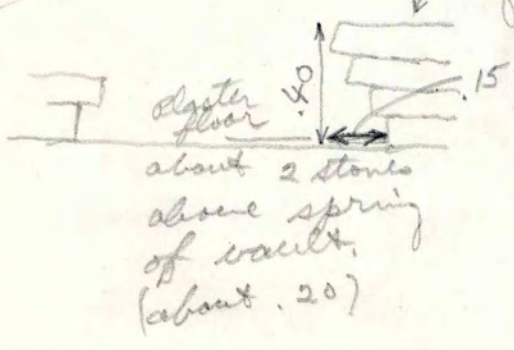 .40
.15
plaster
floor
about 2 stones
above spring
of vault.
(about .20)